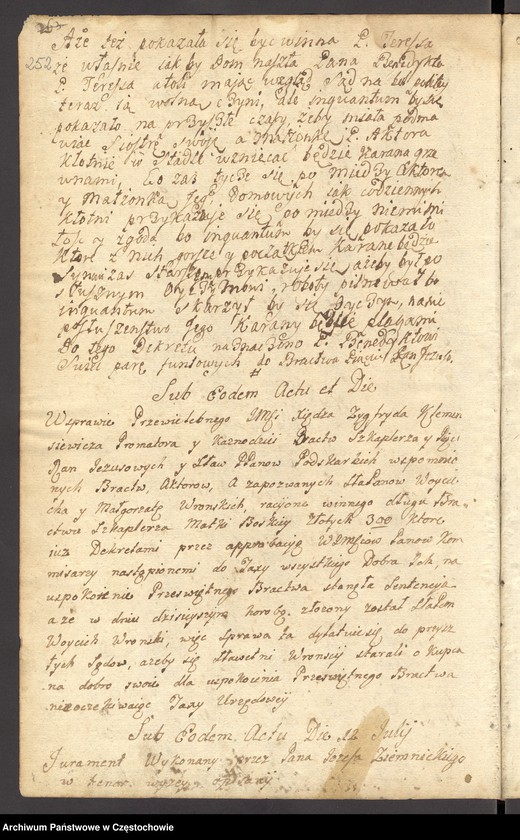 252
Aże też pokazała się być winna P. Teressa
że właśnie jakby Dom naszła Pana Benedykta
P. Teressa atoli mając wzgląd Sąd na
teraz ią wolną czyni, ale inquantum by się
pokazało na przyszłe czasy, żeby miała podma
wiać Siostrę swoię a Małżonkę P. Aktora
kłótnie w Stadle wzniecać będzie karana grzy
wnami, Co zaś tycze się po miedzy Aktora
y Małżonka Jego, Domowych jak codziennych
kłotni przykazuje się po miedzy niemi mi
łość y zgoda bo inquantum by się pokazało
ktore z nich gorsze y początkiem karane będzie
Synowi zaś Starszem przykazuje się ażeby był po
słusznym Oycu Swemu, roboty pilnował bo
inquantum skarżył by się Oyciec, na nie
posłuszeństwo Jego karany będzie plagami
Do tego Dekretu naznaczno P. Benedyktowi
funtowych do Bractwa
Sub Eodem Actu et Die
Wsprawie Przewielebnego Jmści Xiędza Zygfryda Klemen
siewicza Promotora y Kaznodzieii Bractw Szkaplerza y
Pan Jezusowych y Sław PPanow Podskarbich wspomnio
nych Bractw, Aktorow, A zapozwanych Sła Panow Woycie
cha y Małgorzatę Wronskich, racyone winnego długu Bra
ctwu Szkaplerza Matki Boskiey Złotych 300 ktore
iuż Dekretami przez approbacyę WIMściow Panow Kom
misarzy nastąpionemi do Taxy wszystkiego Dobra Ich, na
uspokoienie Przeświętnego Bractwa stanęła Sentencya
a że w dniu dzisieyszym chorobą złożony został SłaPan
Woyciech Wronski, więc sprawa ta dylatuie się do przysz
łych Sądow, ażeby się Sławetni Wronscy starali o Kupca
na dobro swoie dla uspokoienia Przeświętnego Bractwa
nie oczekiwaiąc Taxy Urzędowey
Sub Eodem Actu Die 12 Julij
Jurament Wykonany przez Pana Jozefa Ziemnickiego
w tenor wyżey opisany
Archiwum Państwowe w Częstochowie